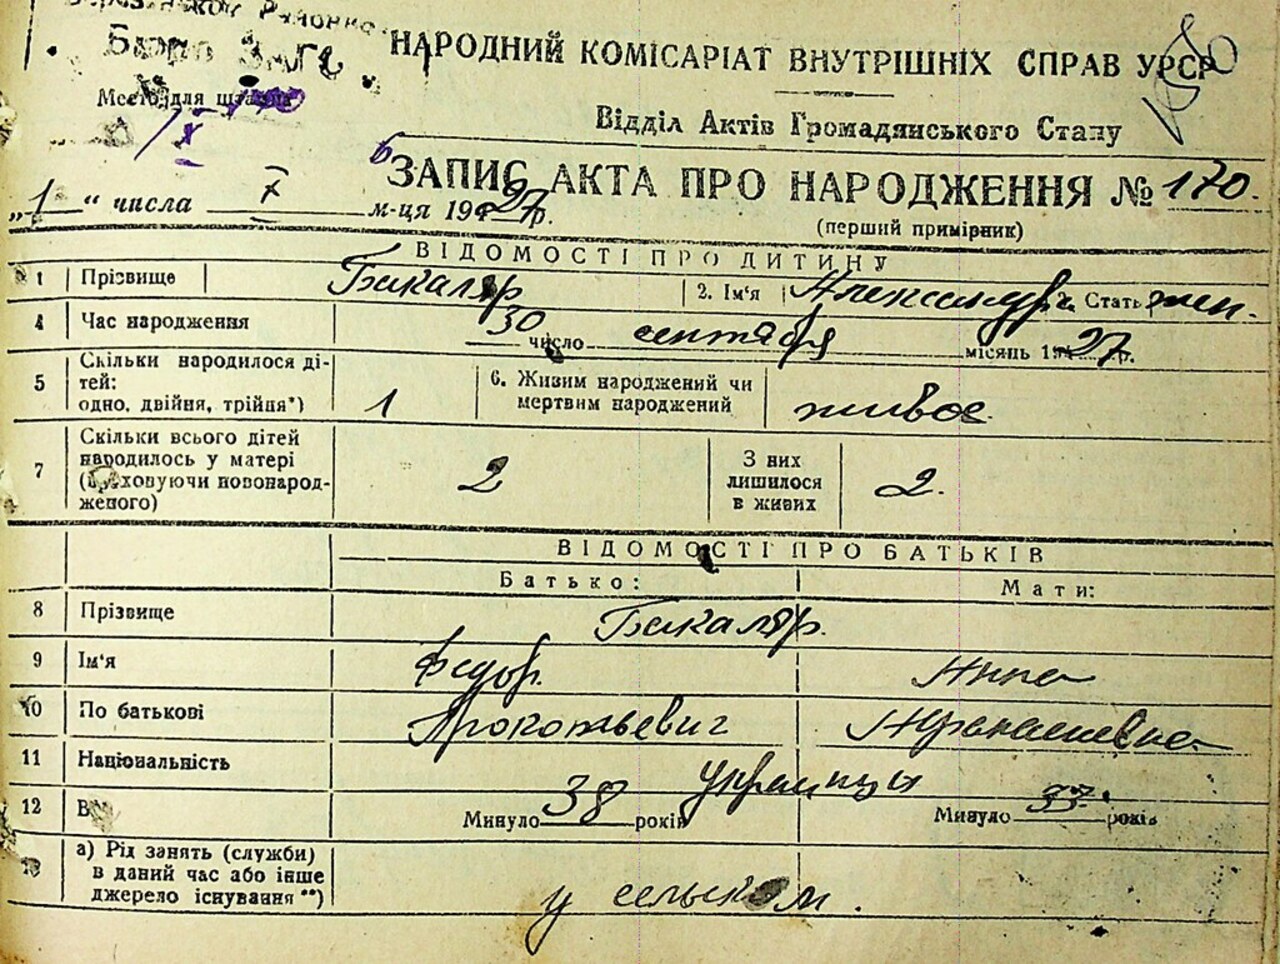 Бюро ЗАГС
НАРОДНИЙ КОМІСАРІАТ ВНУТРІШНІХ СПРАВ УРСР
Место для штампа
Відділ Актів Громадянського Стану
ЗАПИС АКТА ПРО НАРОДЖЕННЯ № 170.
„1“ числа X м-ця 1927р.
(перший примірник)
ВІДОМОСТІ ПРО ДИТИНУ
1 Прізвище Бакаляр 2. Ім'я Александра 3. Стать жен.
4 Час народження 30 число сентября місяць 1927р.
5 Скільки народилося ді-
тей:
одно, двійня, трійня*) 1 6. Живим народжений чи
мертвим народжений живое.
7 Скільки всього дітей
народилось у матері
(враховуючи новонарод-
женого) 2 З них
лишилося
в живих 2.
ВІДОМОСТІ ПРО БАТЬКІВ
Батько: Мати:
8 Прізвище Бакаляр.
9 Ім'я Федор. Анна
10 По батькові Прокопьевич
11 Національність украинцы
12 Минуло 38 років Минуло 33 років
13 а) Рід занять (служби)
в даний час або інше
джерело існування **) у сельском.